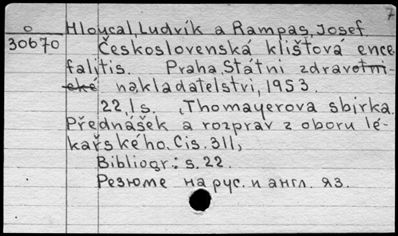 7
o Hloucal, Ludvík a Rampas, Josef.
30670 Československá klíšťová ence
falitis. Praha, Státní zdravotni-
cké nakladatelství, 1953.
22, 1 s. , Thomayerova sbírka.
Přednášek a rozprav z oboru lé-
kařského. Čís. 311,
Bibliogr: s. 22.
Резюме на рус. и англ. яз.